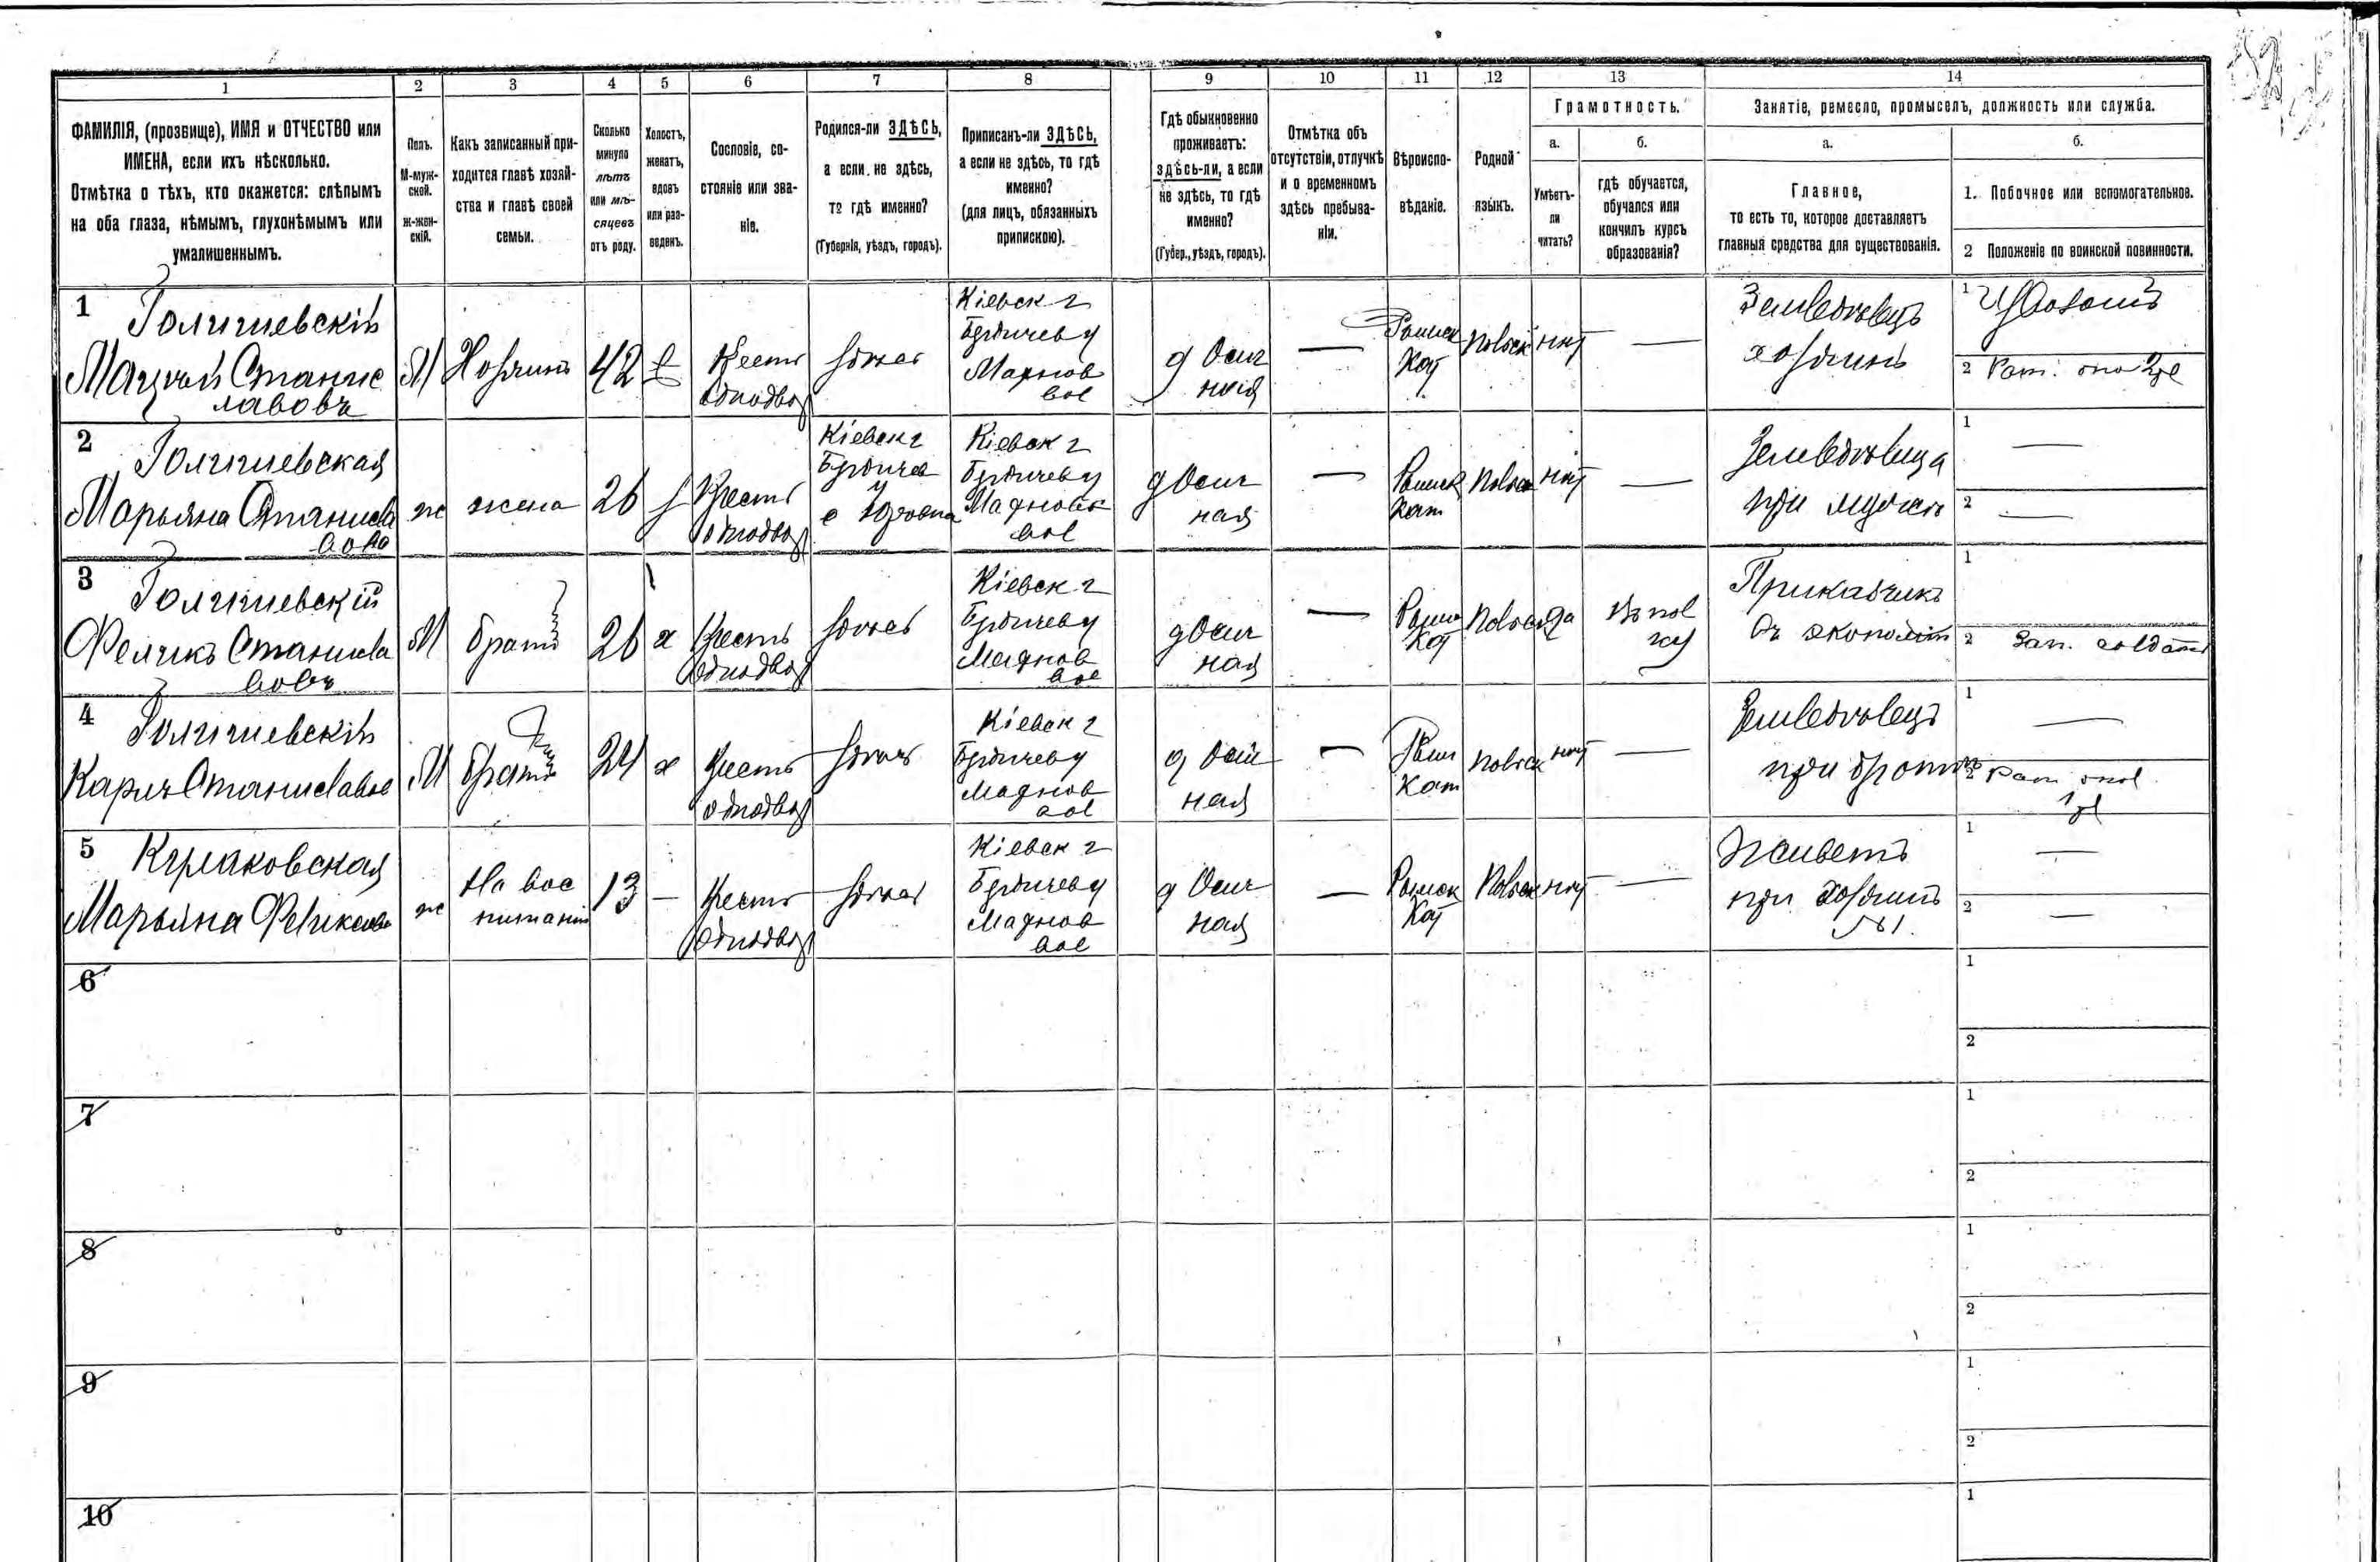 1 2 3 4 5 6 7 8 9 10 11 12 13 14
ФАМИЛІЯ, (прозвище), ИМЯ и ОТЧЕСТВО или
ИМЕНА, если ихъ нѣсколько.
Отмѣтка о тѣхъ, кто окажется: слѣпымъ
на оба глаза, нѣмымъ, глухонѣмымъ или
умалишеннымъ.
Полъ.
М-муж-
ской.
Ж-жен-
скій.
Какъ записанный при-
ходится главѣ хозяй-
ства и главѣ своей
семьи.
Сколько
минуло
лѣтъ
или мѣ-
сяцевъ
отъ роду.
Холостъ,
женатъ,
вдовъ
или раз-
веденъ.
Сословіе, со-
стояніе или зва-
ніе.
Родился-ли ЗДѢСЬ,
а если не здѣсь,
то гдѣ именно?
(Губернія, уѣздъ, городъ).
Приписанъ-ли ЗДѢСЬ,
а если не здѣсь, то гдѣ
именно?
(для лицъ, обязанныхъ
припискою).
Гдѣ обыкновенно
проживаетъ:
здѣсь-ли, а если
не здѣсь, то гдѣ
именно?
(Губер., уѣздъ, городъ).
Отмѣтка объ
отсутствіи, отлучкѣ
и о временномъ
здѣсь пребыва-
ніи.
Вѣроиспо-
вѣданіе.
Родной
языкъ.
Грамотность.
а.
Умѣетъ-
ли
читать?
б.
гдѣ обучается,
обучался или
кончилъ курсъ
образованія?
Занятіе, ремесло, промыселъ, должность или служба.
а.
Главное,
то есть то, которое доставляетъ
главныя средства для существованія.
б.
1. Побочное или вспомогательное.
2 Положеніе по воинской повинности.
1
Мацѣй Станис
лавовъ
М
Хозяинъ
42
Крест
однодвор
здѣсь
Кіевск г
Бердичев у
Махнов
вол
д Осич
ная
—
Римск
Кат
польск
нѣт
—
Земледѣлецъ
хозяинъ
1 Извозомъ
2
2
Марьяна Станисла
вова
ж
жена
26
Крест
однодвор
Кіевск г
Бердичев
Кіевск г
Бердичев у
Махновск
вол
д Осич
ная
—
Римск
Кат
польск
нѣт
—
Земледѣлица
при мужѣ
1 —
2 —
3
Феликъ Станисла
вовъ
М
братъ
26
х
Крестъ
однодвор
здѣсь
Кіевск г
Бердичев у
Махнов
вол
д Осич
ная
—
Римс
Кат
польск
да
Приказчикъ
въ экономіи
1
2 Зап. солдатъ
4
Станиславов
М
братъ
24
х
Крестъ
однодвор
здѣсь
Кіевск г
Бердичев у
Махнов
вол
д Осич
ная
—
Рим
Кат
польск
нѣт
—
Земледѣлецъ
при братѣ
1 —
2
5
Марьяна Феликсова
ж
На вос
питаніи
13
—
Крестъ
однодвор
здѣсь
Кіевск г
Бердичев у
Махнов
вол
д Осич
ная
—
Римск
Кат
Польск
нѣт
—
Живетъ
при хозяинѣ
№1.
1 —
2 —
6
1
2
7
1
2
8
1
2
9
1
2
10
1